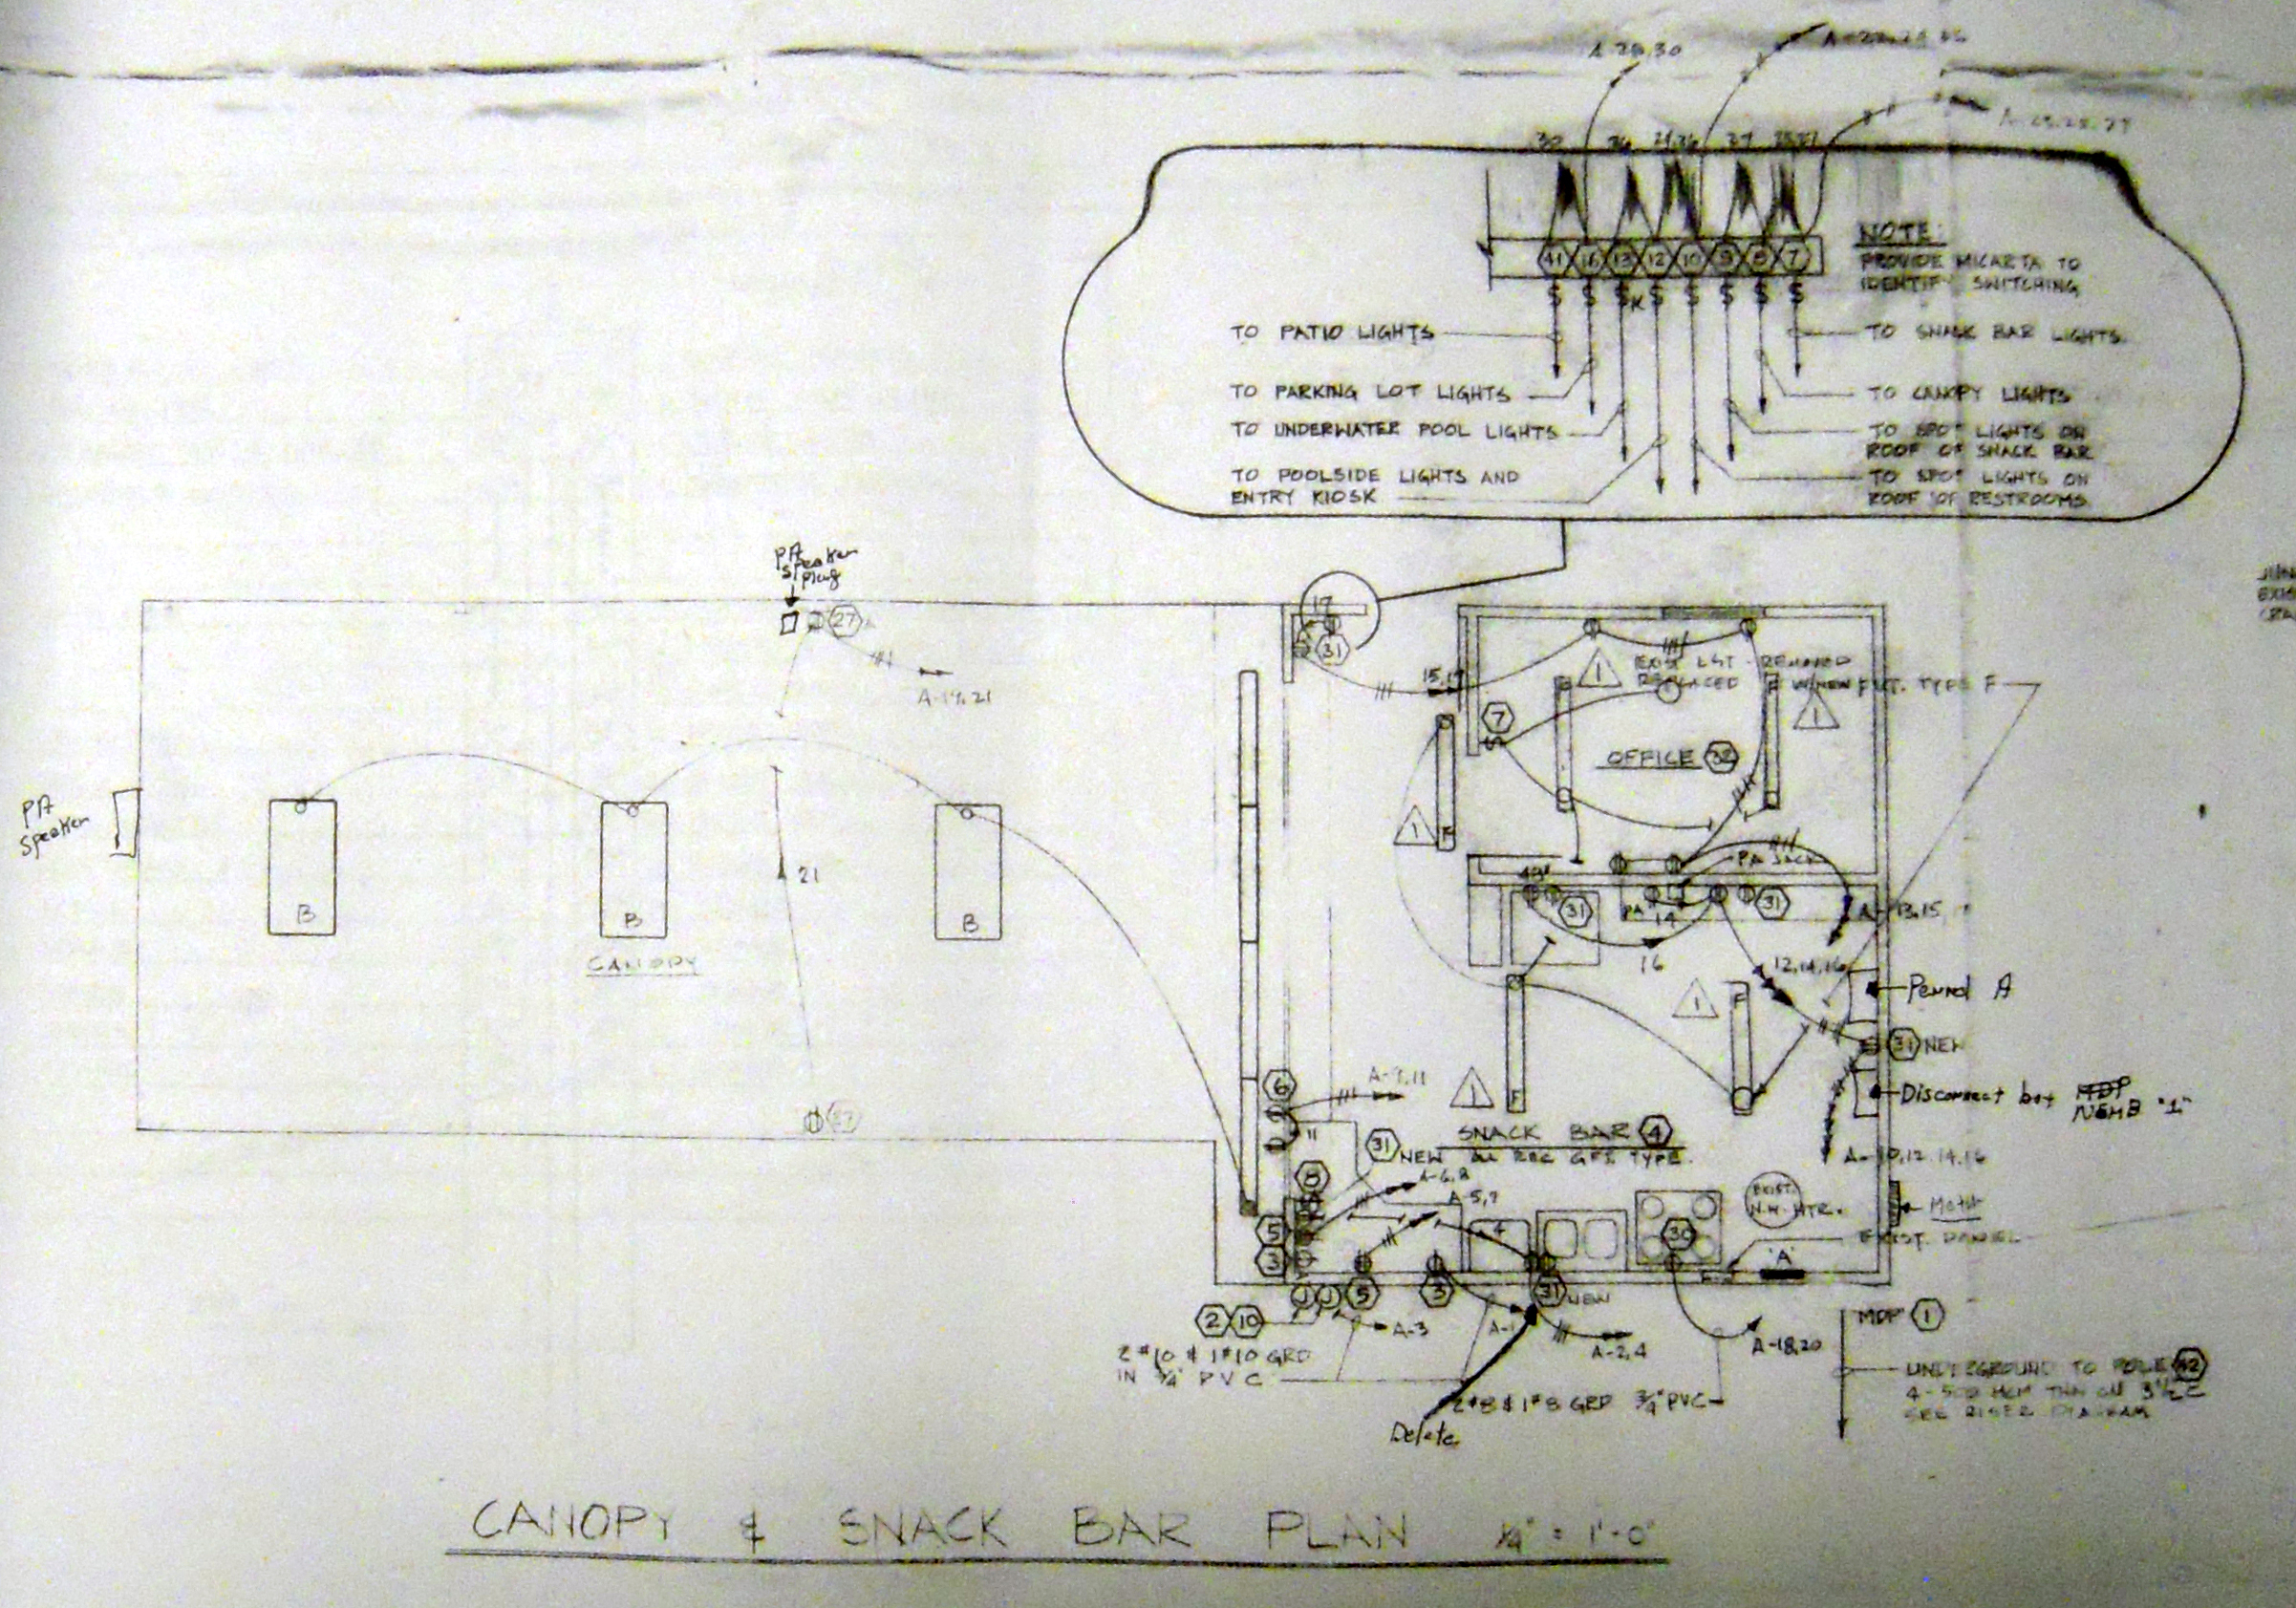 30
NOTE:
PROVIDE MICARTA TO
IDENTIFY SWITCHING
41 16 13 12 10 9 8 7
S S S K S S S S S
TO PATIO LIGHTS
TO SNACK BAR LIGHTS
TO PARKING LOT LIGHTS
TO CANOPY LIGHTS
TO UNDERWATER POOL LIGHTS
TO SPOT LIGHTS ON
ROOF OF SNACK BAR
TO POOLSIDE LIGHTS AND
ENTRY KIOSK
TO SPOT LIGHTS ON
ROOF OF RESTROOMS
PA
Speaker
plug
27
A-19,21
17
31
15,17
1
EXIST LGT REMOVED
REPLACED W/NEW FXT. TYPE F
1
7
S
OFFICE
1
F
PA
Speaker
B
B
B
21
CANOPY
PA JACK
31
PA
14
31
A-13,15
16
12,14,16
Pannel A
1
F
31 NEW
Disconnect box MDP
NEMB "1"
6
A-9,11
11
1
F
SNACK BAR 4
31 NEW ALL REC GFI TYPE.
A-10,12 14,16
8
A-6,8
A-5,7
EXIST.
H.W. HTR.
Motor
5
4
30
EXIST. PANEL
3
"A"
J J 5
3
31 NEW
2 10
A-3
A-1
A-2,4
A-18,20
MDP 1
2 #10 & 1 #10 GRD
IN 3/4" PVC
2#8 & 1#8 GRD 3/4" PVC
Delete
UNDERGROUND TO POLE 42
SEE RISER DIAGRAM
CANOPY & SNACK BAR PLAN 1/4" = 1'-0"